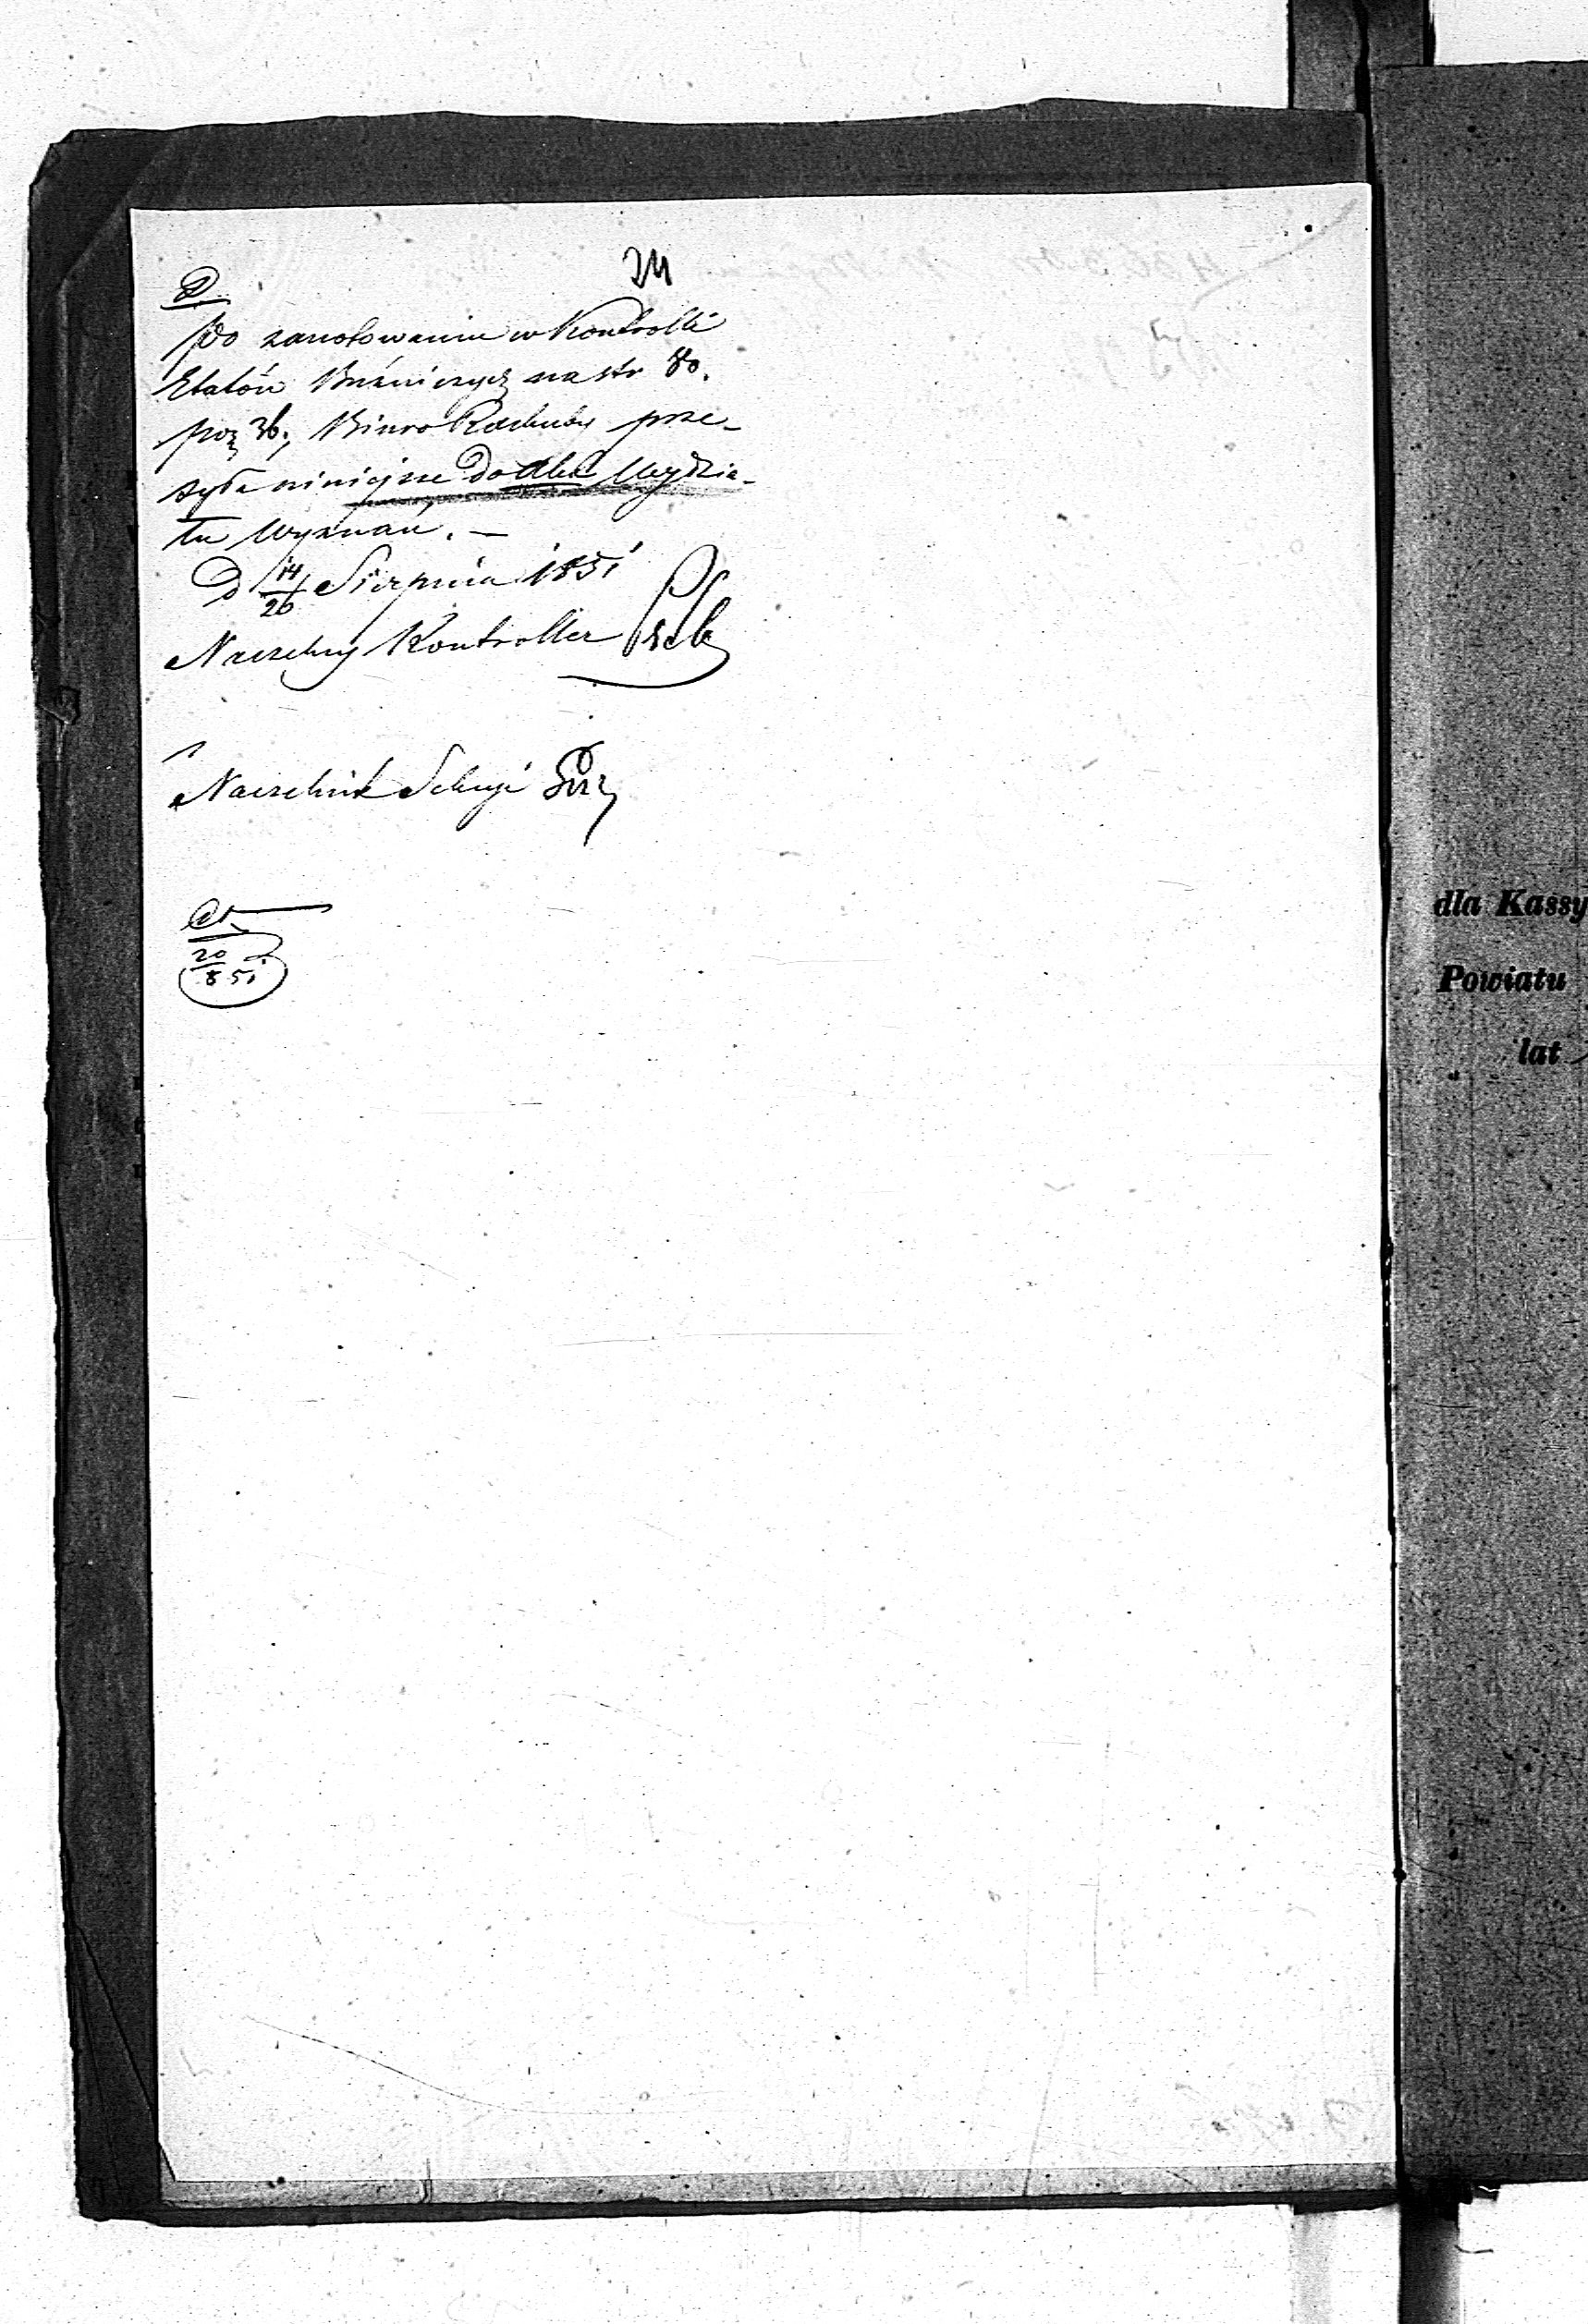 24
Po zanotowaniu w Kontrolli
Etatów Bużniczych na str 80.
poz 36, Biuro Rachuby prze-
syła niniejsze do Akt Wydzia-
łu Wyznań. —
D 14/26 Sierpnia 1851
Naczelny Kontroller
Naczelnik Sekcyi
20/8 51
dla Kassy
Powiatu
lat